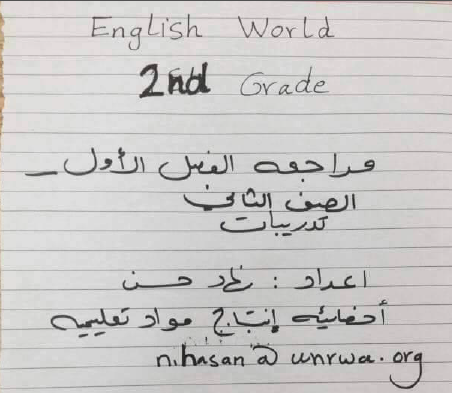 English World
2nd Grade
مراجعه الفصل الأول –
الصف الثاني
تدريبات
اعداد : نهاد حسن
أخصائيه إنتاج مواد تعليميه
n.hasan@unrwa.org